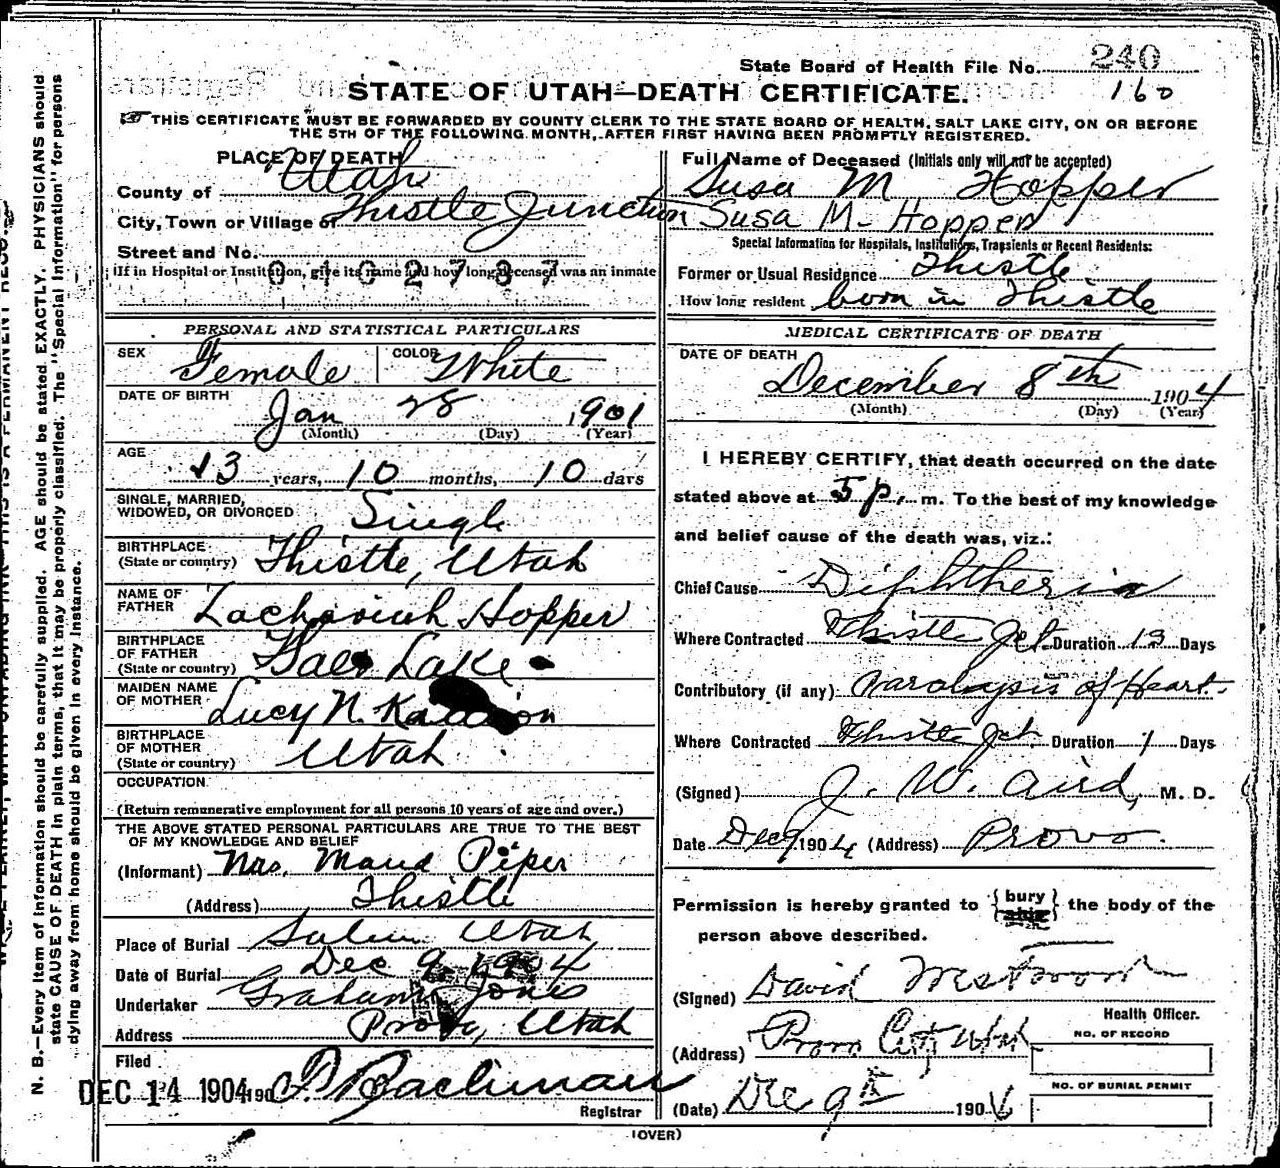 State Board of Health File No. 240
160
STATE OF UTAH—DEATH CERTIFICATE.
THIS CERTIFICATE MUST BE FORWARDED BY COUNTY CLERK TO THE STATE BOARD OF HEALTH, SALT LAKE CITY, ON OR BEFORE
THE 5TH OF THE FOLLOWING MONTH, AFTER FIRST HAVING BEEN PROMPTLY REGISTERED.
PLACE OF DEATH
County of Utah
City, Town or Village of Thistle Junction
Street and No.
(If in Hospital or Institution, give its name and how long deceased was an inmate
0102737
PERSONAL AND STATISTICAL PARTICULARS
SEX Female COLOR White
DATE OF BIRTH Jan 28 1901
(Month) (Day) (Year)
AGE 13 years, 10 months, 10 days
SINGLE, MARRIED,
WIDOWED, OR DIVORCED Single
BIRTHPLACE
(State or country) Thistle, Utah
NAME OF
FATHER Zachariah Hopper
BIRTHPLACE
OF FATHER
(State or country) Lake
MAIDEN NAME
OF MOTHER Lucy N.
BIRTHPLACE
OF MOTHER
(State or country) Utah
OCCUPATION
(Return remunerative employment for all persons 10 years of age and over.)
THE ABOVE STATED PERSONAL PARTICULARS ARE TRUE TO THE BEST
OF MY KNOWLEDGE AND BELIEF
(Informant) Mrs. Maud Piper
(Address) Thistle
Place of Burial Salem Utah
Date of Burial Dec 9 1904
Undertaker Graham Jones
Address Provo, Utah
Filed
DEC 14 1904 190 Bachman
Registrar
Full Name of Deceased (Initials only will not be accepted)
Susa M Hopper
Susa M. Hopper
Special Information for Hospitals, Institutions, Transients or Recent Residents:
Former or Usual Residence Thistle
How long resident born in Thistle
MEDICAL CERTIFICATE OF DEATH
DATE OF DEATH
December 8th 1904
(Month) (Day) (Year)
I HEREBY CERTIFY, that death occurred on the date
stated above at 5 p. m. To the best of my knowledge
and belief cause of the death was, viz.:
Chief Cause Diphtheria
Where Contracted Thistle Jct. Duration 13 Days
Contributory (if any) Paralysis of Heart
Where Contracted Thistle Jct. Duration 1 Days
(Signed) J. W. Aird, M. D.
Date Dec 9 1904 (Address) Provo.
Permission is hereby granted to {bury} the body of the
person above described.
(Signed) David Westwood
Health Officer.
(Address) Provo City Utah
NO. OF RECORD
NO. OF BURIAL PERMIT
(Date) Dec 9th 1904
(OVER)
N. B.—Every item of information should be carefully supplied. AGE should be stated EXACTLY. PHYSICIANS should
state CAUSE OF DEATH in plain terms, that it may be properly classified. The "Special Information" for persons
dying away from home should be given in every instance.